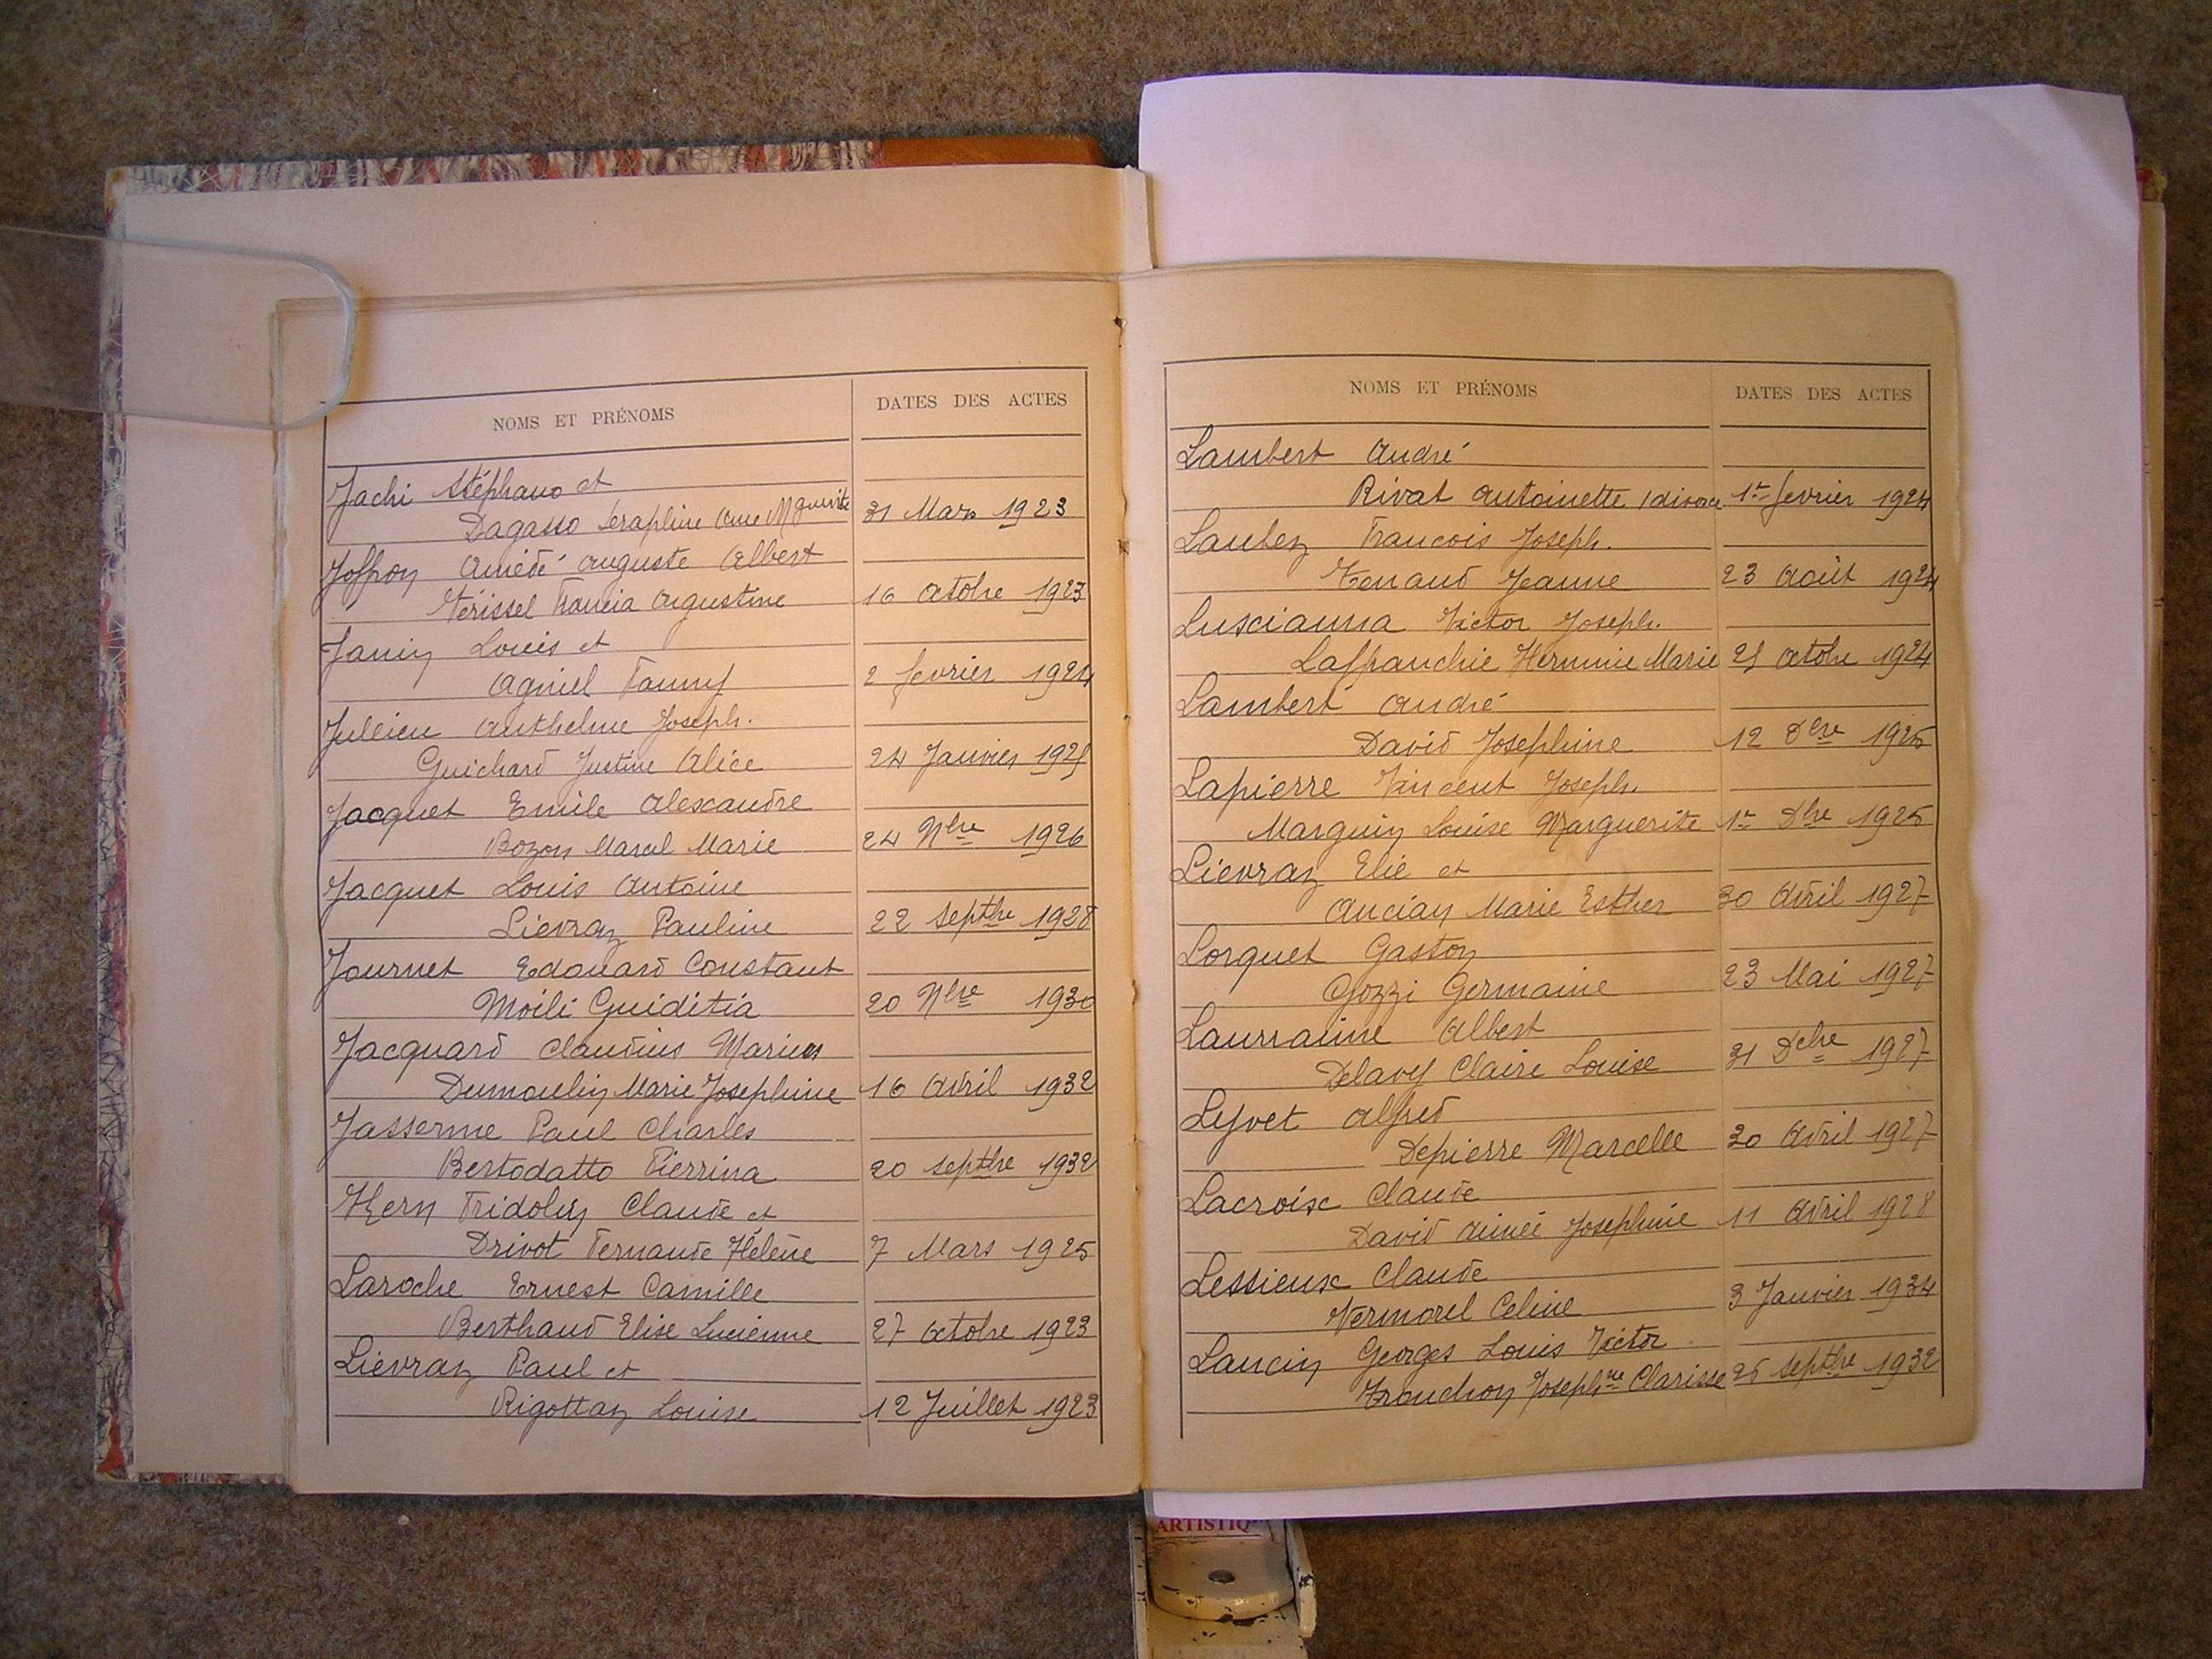 NOMS ET PRÉNOMS DATES DES ACTES
Jachi Stéphano et
Dagasso Seraphine Mguerite 31 Mars 1923
Joffron Amédé Auguste Albert
Vérissel Francia Augustine 16 Octobre 1923
Janin Louis et
Agniel Fanny 2 fevrier 1924
Jullien Anthelme Joseph.
Guichard Justine Alice 24 Janvier 1925
Jacquet Emile Alexandre
Bozon Marcel Marie 24 Nbre 1926
Jacquet Louis Antoine
Lievraz Pauline 22 Septbre 1928
Journet Edouard Constant
Moili Guiditia 20 Nbre 1930
Jacquard Claudius Marius
Dumoulin Marie Josephine 16 Avril 1932
Jasserme Paul Charles
Bertodatto Pierrina 20 Septbre 1932
Kern Fridolin Claude et
Drivot Fernande Hélène 7 Mars 1925
Laroche Ernest Camille
Berthaud Elise Lucienne 27 Octobre 1923
Lievraz Paul et
Rigottaz Louise 12 Juillet 1923
NOMS ET PRÉNOMS DATES DES ACTES
Lambert André
Rivat Antoinette (divorce 1er fevrier 1924
Laubez Francois Joseph.
Tenaud Jeanne 23 Août 1924
Luscianna Victor Joseph.
Laffranchie Herminie Marie 25 Octobre 1924
Lambert André
David Josephine 12 Dbre 1925
Lapierre Vincent Joseph.
Marguin Louise Marguerite 1er Dbre 1925
Lievraz Elie et
Ancian Marie Esther 30 Avril 1927
Lorquet Gaston
Gozzi Germaine 23 Mai 1927
Laurraine Albert
Delavy Claire Louise 31 Dcbre 1927
Leyvet Alfred
Depierre Marcelle 30 Avril 1927
Lacroix Claude
David Aimée Josephine 11 Avril 1928
Lessieux Claude
Vermorel Celine 3 Janvier 1934
Lancin Georges Louis Victor
Tronchon Josephne Clarisse 26 Septbre 1932
ARTISTIQ